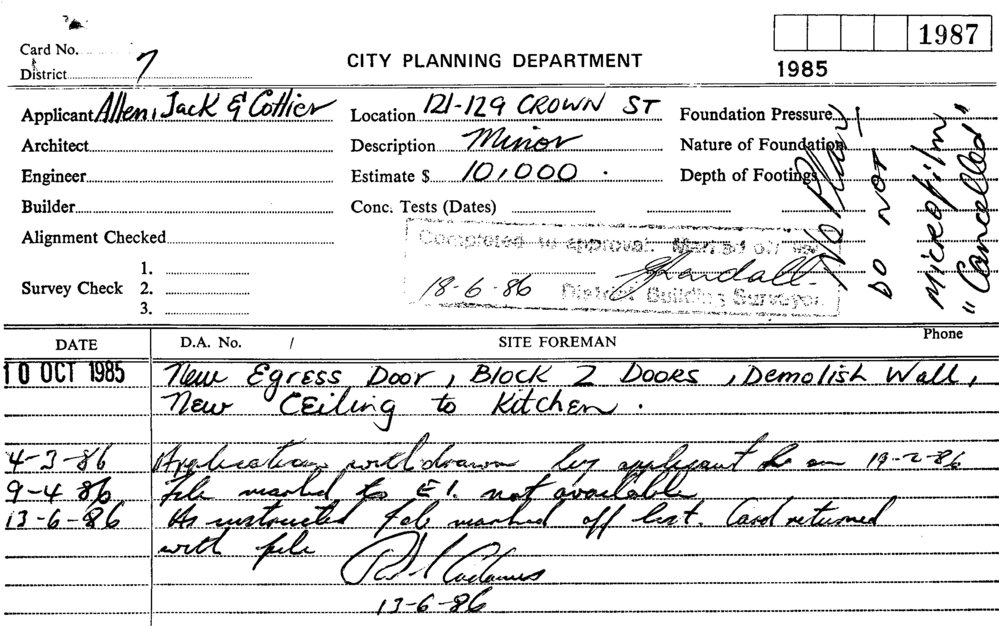 1987
Card No.
CITY PLANNING DEPARTMENT
1985
District 7
Applicant Allen, Jack & Cottier
Location 121-129 CROWN ST
Foundation Pressure
Architect
Description Minor
Nature of Foundation
Engineer
Estimate $ 10,000.
Depth of Footings
Builder
Conc. Tests (Dates)
Alignment Checked
Survey Check
1.
2.
3.
Completed to approval. Marked off
18-6-86
District Building Surveyor
No Plan
DO NOT
MICROFILM
"Cancelled"
DATE
D.A. No. /
SITE FOREMAN
Phone
10 OCT 1985 New Egress Door, Block 2 Doors, Demolish Wall,
New Ceiling to Kitchen.
4-3-86 Application withdrawn by applicant 19-2-86
9-4-86 file marked to E1. not available
13-6-86 As instructed file marked off list. Card returned
with file
13-6-86